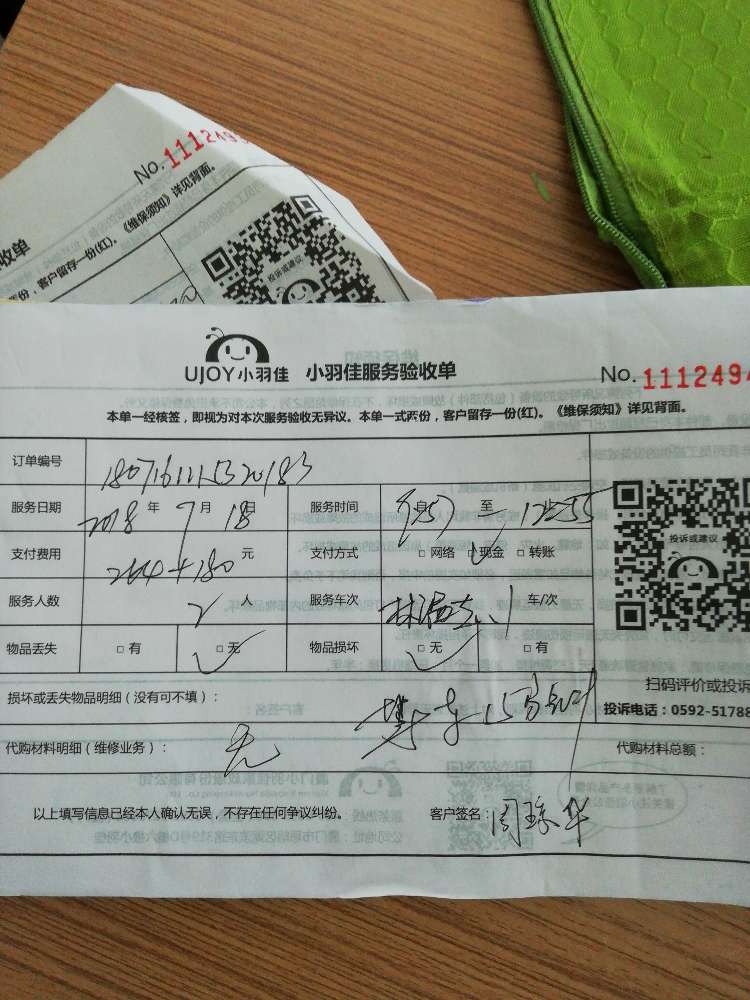 No. 111249
收单
份，客户留存一份(红)。《维保须知》详见背面。
投诉或建议
UJOY小羽佳 小羽佳服务验收单
No. 1112494
本单一经核签，即视为对本次服务验收无异议。本单一式两份，客户留存一份(红)。《维保须知》详见背面。
订单编号 1807161115320183
服务日期 2018年7月18日 服务时间 9:57至12:55
支付费用 264+180元 支付方式 □网络 □现金 □转账
服务人数 2人 服务车次 车/次
物品丢失 □有 □无 物品损坏 □无 □有
投诉或建议
扫码评价或投诉
投诉电话：0592-51788
损坏或丢失物品明细（没有可不填）：
代购材料明细（维修业务）： 无 代购材料总额：
以上填写信息已经本人确认无误，不存在任何争议纠纷。 客户签名：周琼华